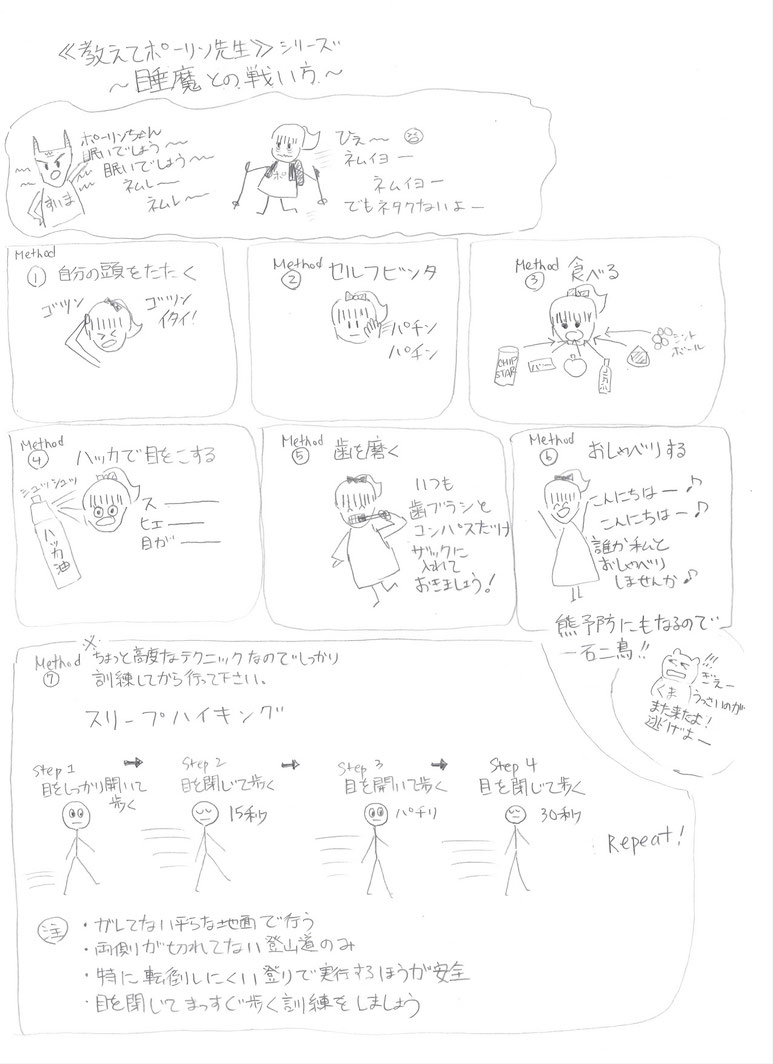 ≪教えてポーリン先生≫シリーズ
～睡魔との戦い方～
ポーリンちゃん
眠いでしょう～
眠いでしょう～
ネムレ～
ネムレ～
すいま
ポ
ひぇ～
ネムイヨー
ネムイヨー
でもネタクないよー
Method
① 自分の頭をたたく
ゴッツン
ゴッツン
イタイ!
Method
② セルフビンタ
パチン
パチン
Method
③ 食べる
CHIP
STAR
バー
ミント
ボール
Method
④ ハッカで目をこする
シュッシュッ
ハッカ油
スー
ヒェー
目がー
Method
⑤ 歯を磨く
いつも
歯ブラシと
コンパスだけ
ザックに
入れて
おきましょう!
Method
⑥ おしゃべりする
こんにちはー♪
こんにちはー♪
誰か私と
おしゃべり
しませんか♪
熊予防にもなるので
一石二鳥!!
くま
ぎえー
うっさいのが
また来たよ!
逃げよー
Method
⑦
※ちょっと高度なテクニックなのでしっかり
訓練してから行って下さい。
スリープハイキング
Step 1
目をしっかり開いて
歩く
Step 2
目を閉じて歩く
15秒
Step 3
目を開いて歩く
パチリ
Step 4
目を閉じて歩く
30秒
Repeat!
注
・ガレてない平らな地面で行う
・両側が切れてない登山道のみ
・特に転倒しにくい登りで実行するほうが安全
・目を閉じてまっすぐ歩く訓練をしましょう